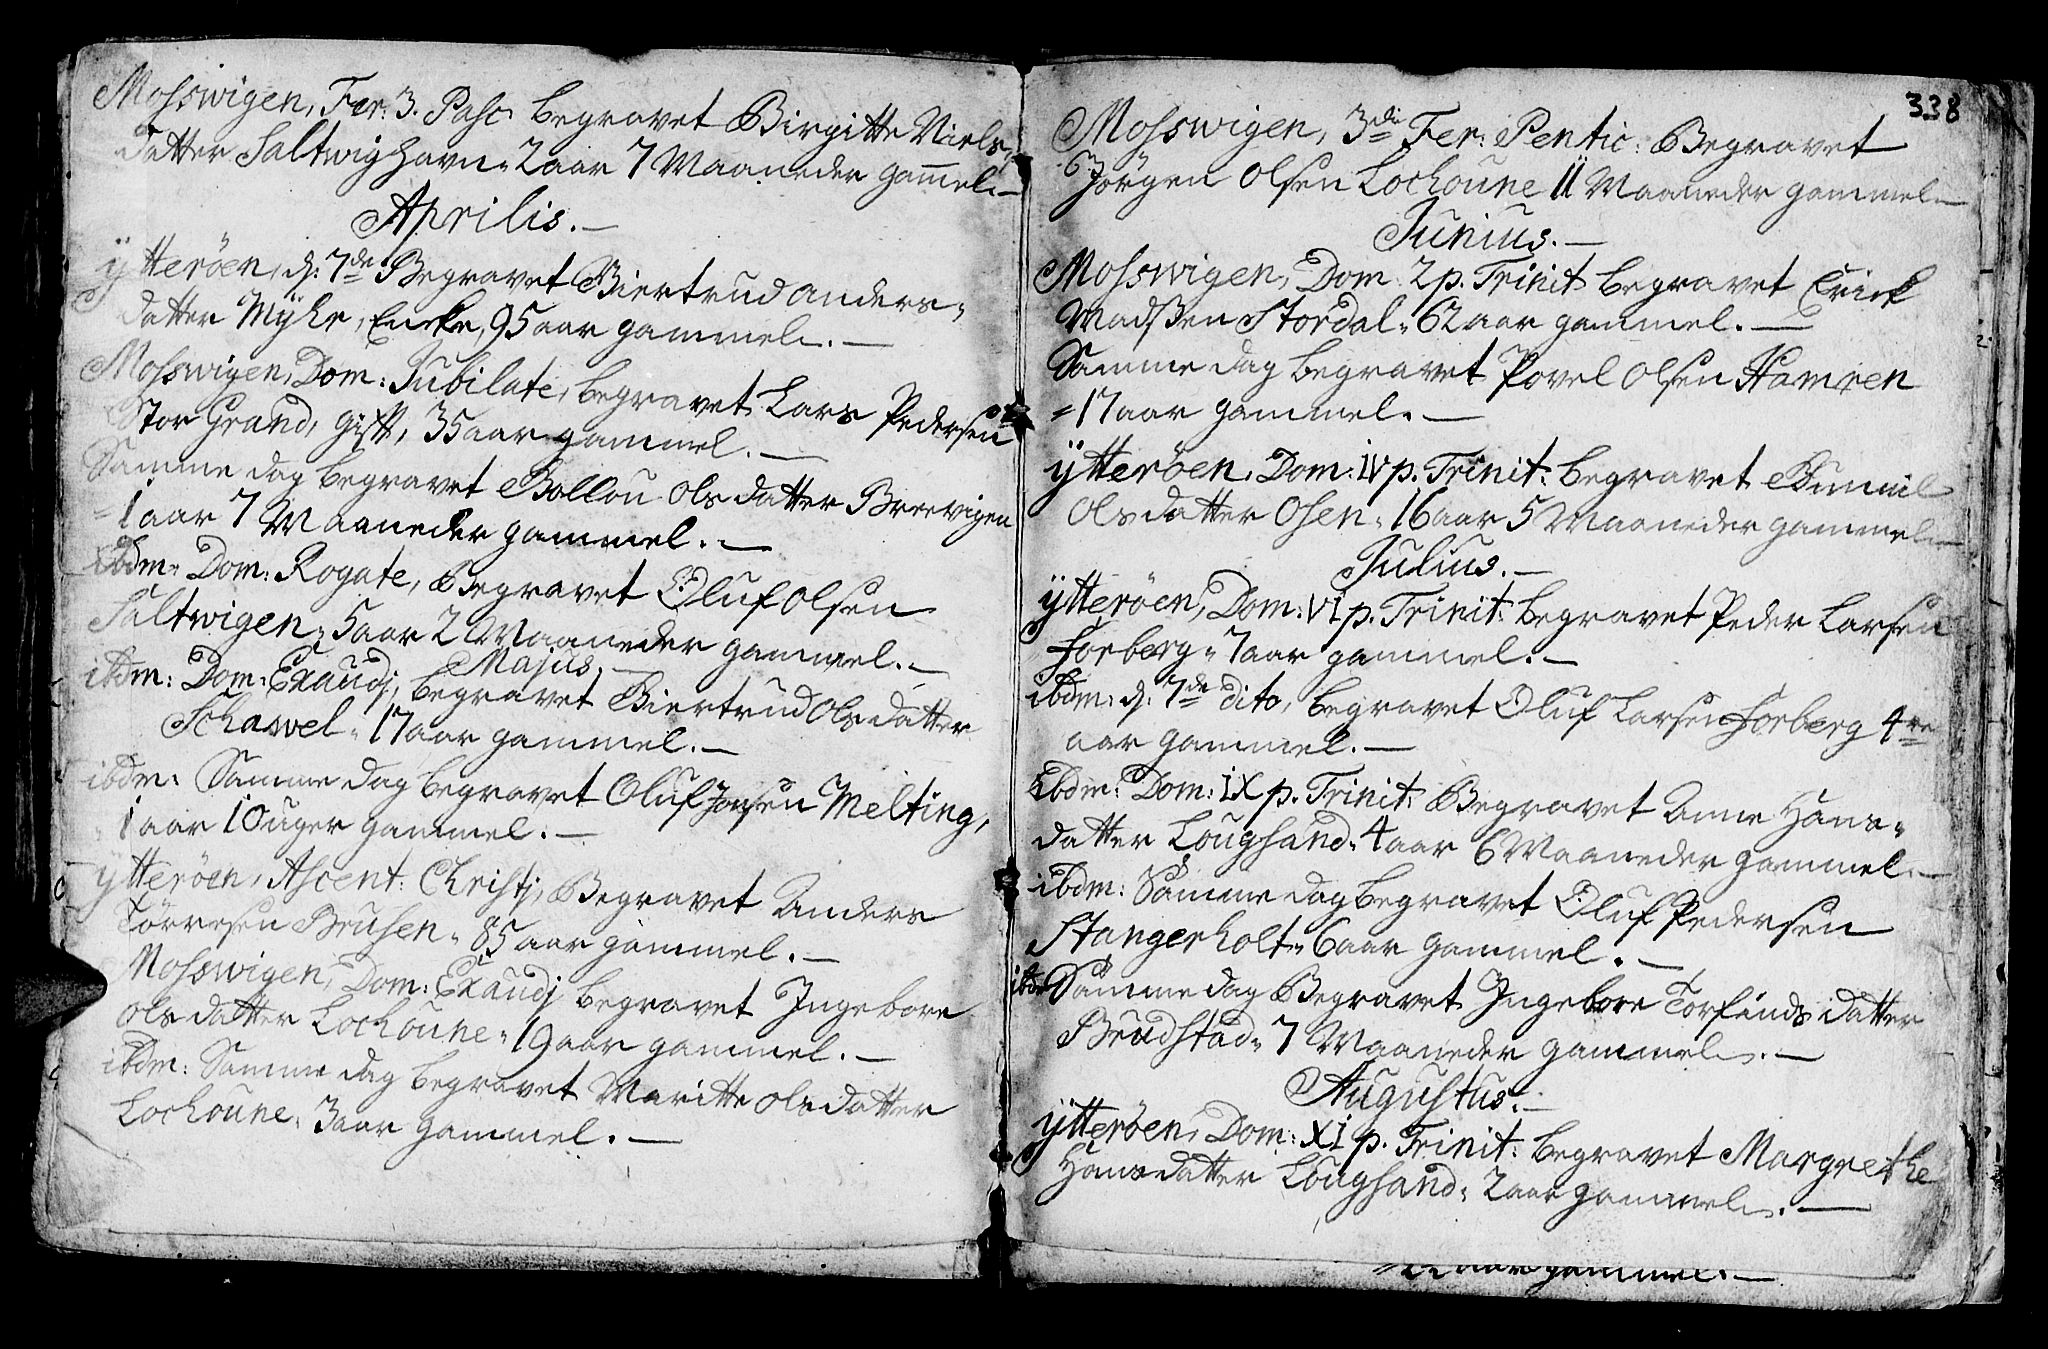 Mosswigen, Fer: 3. Pasc. begravet Birgitte Niels=
datter Saltwighavn. 2 aar 7 Maaneder gam̄el.
Aprilis.
ÿtterøen, d: 7de Begravet Biertrud Anders=
datter Mÿhr, Encke, 95 aar gammel.
Mosswigen, Dom: Jubilate, begravet Lars Pedersen
Stor Grand, gift, 35 aar gammel.
Samme dag begravet Bollou Olsdatter Breevigen
1 aar 7 Maaneder gammel.
ibdm. Dom: Rogate, Begravet Oluf Olsen
Saltwigen, 5 aar 2 Maaneder gammel.
Majus.
ibdm: Dom: Exaudj, begravet Biertrud Olsdatter
Schawel. 17 aar gammel.
ibdm: Samme dag begravet Oluf Jonsen Melting,
1 aar 10 uger gammel.
ÿtterøen, Ascent: Christj, Begravet Anders
Törresen Brusen. 85 aar gammel.
Mosswigen, Dom: Exaudj begravet Ingebore
Olsdatter Lochoune. 19 aar gammel.
ibdm: Samme dag begravet Maritte Olsdatter
Lochoune. 3 aar gammel.
338
Mosswigen, 3di Fer: Pentic: Begravet
Jörgen Olsen Lochoune 11 Maaneder gammel
Junius.
Mosswigen, Dom. 2 p. Trinit: begravet Erick
Madssen Stordal. 62 aar gammel.
Samme dag begravet Povel Olsen Hamren
17 aar gammel.
ÿtterøen, Dom: IV p. Trinit: begravet Gunnil
Olsdatter Osen. 16 aar 5 Maaneder gammel
Julius.
ÿtterøen, Dom: VI p. Trinit: begravet Peder Larsen
Forberg. 7 aar gammel.
ibdm: d: 7de dito, begravet Oluf Larsen Forberg 4re
aar gammel.
ibdm: Dom: IX p. Trinit: Begravet Anne Hans=
datter Lougsand. 4 aar 6 Maaneder gammel.
ibdm: Samme dag begravet Oluf Pedersen
Stangerholt. 6 aar gammel.
ibdm Samme dag Begravet Ingebore Torfinds datter
Brudstad. 7 Maaneder gammel.
Augustus.
ÿtterøen, Dom: XI p. Trinit: begravet Margrethe
Hansdatter Lougsand. 2 aar gammel.
aar gammel.